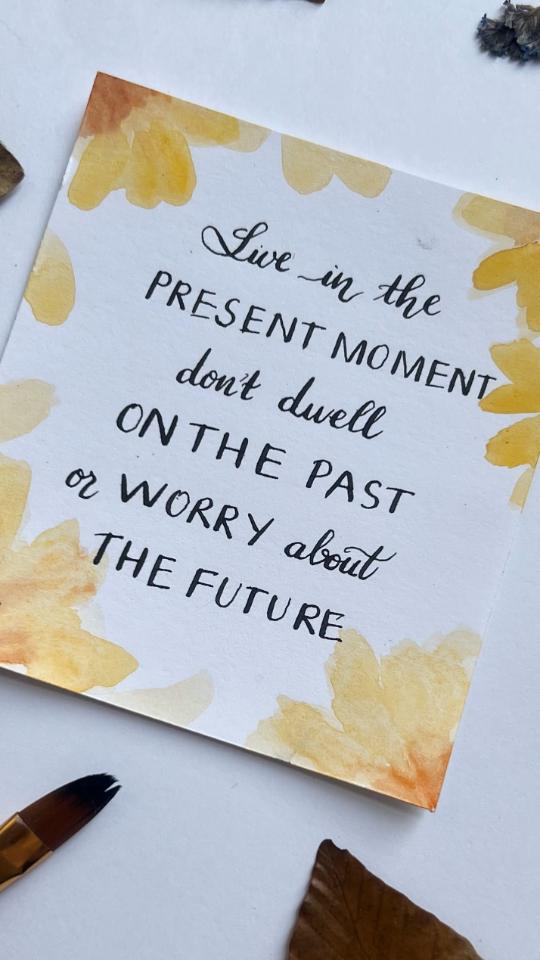 Live in the
PRESENT MOMENT
don't dwell
ON THE PAST
or WORRY about
THE FUTURE